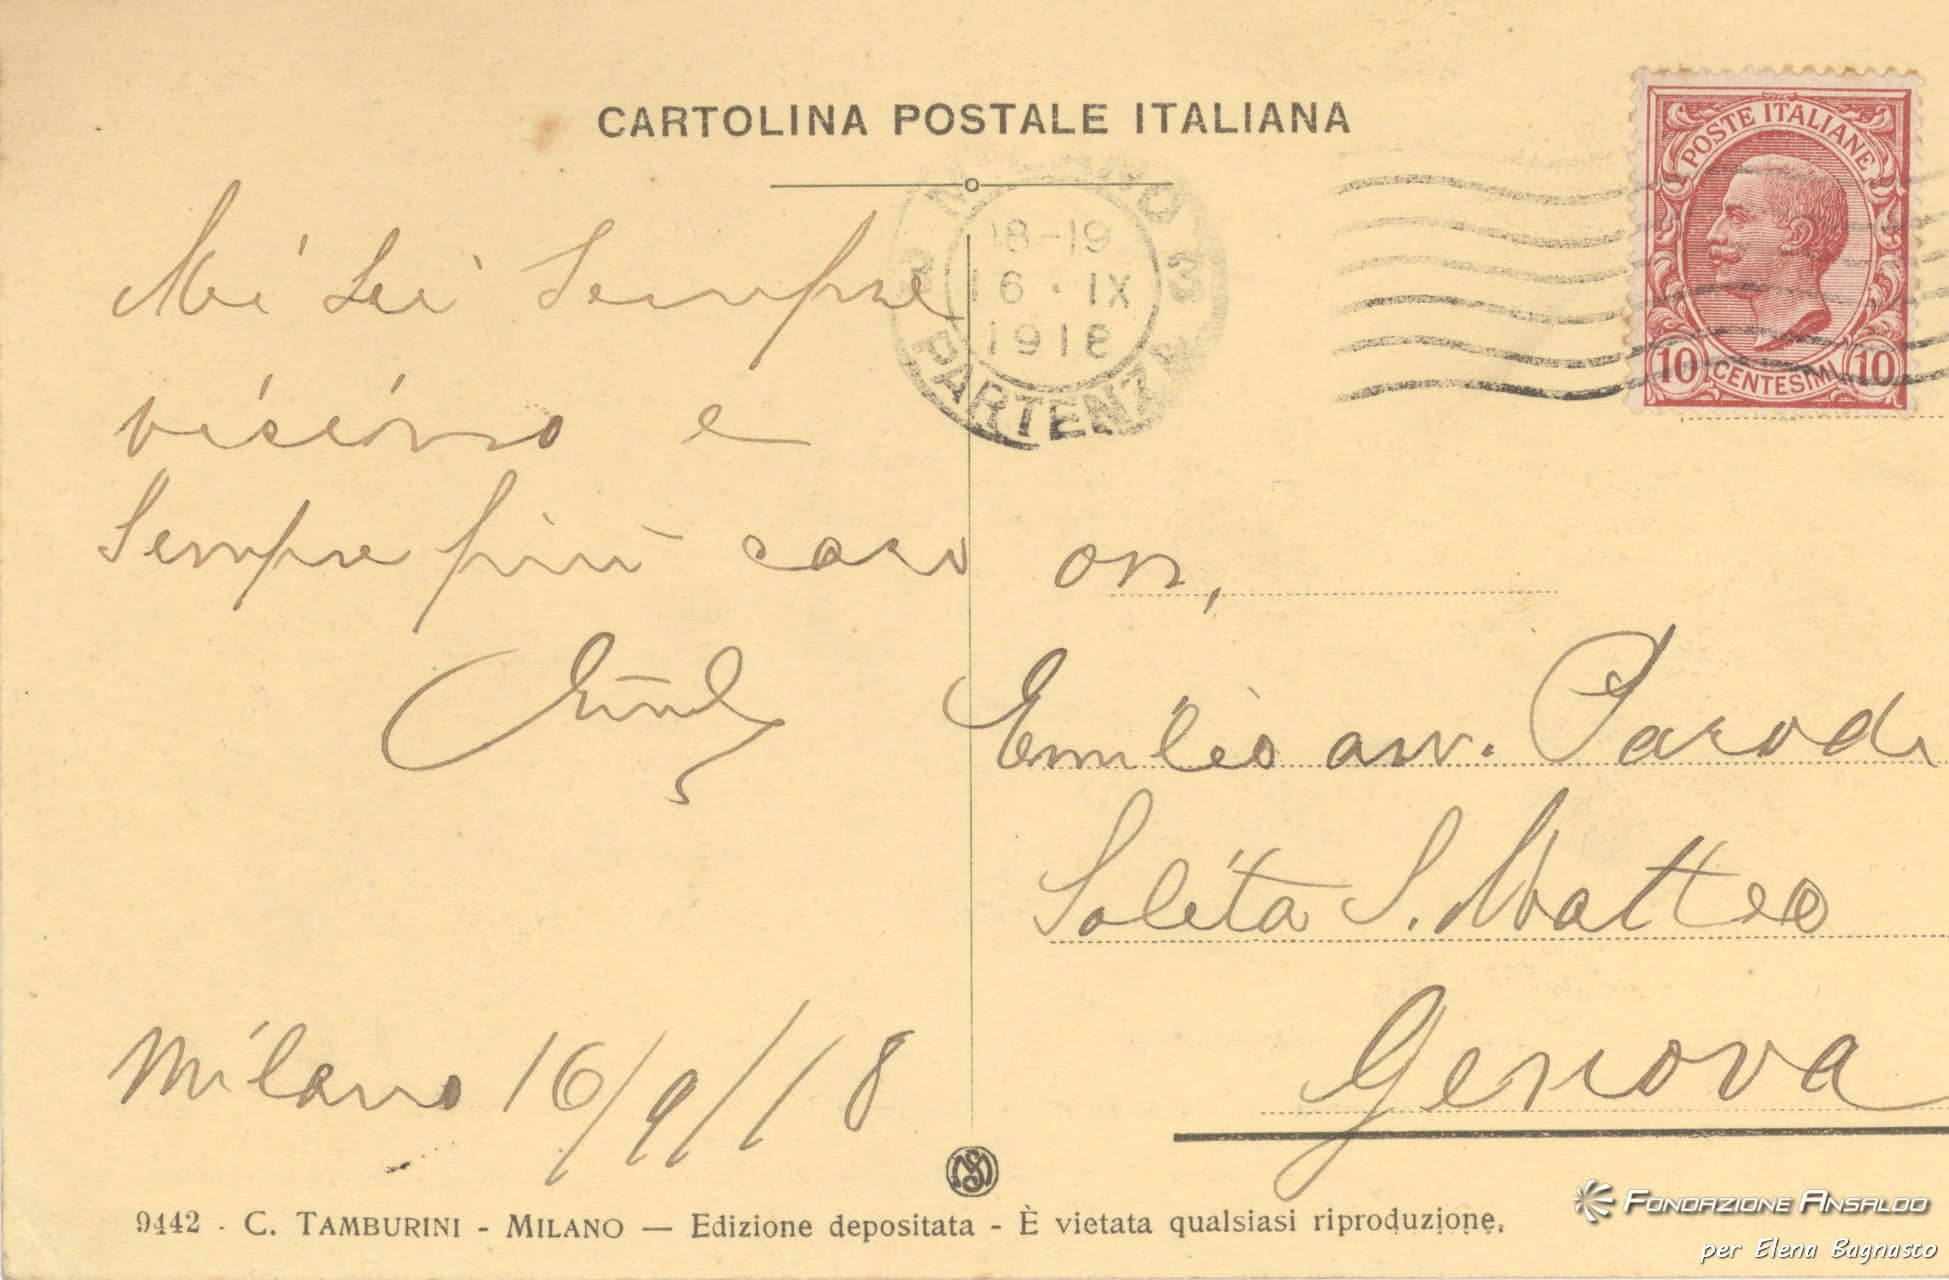 CARTOLINA POSTALE ITALIANA
POSTE ITALIANE
10 CENTESIMI 10
MILANO 3
18-19
16·IX
1918
PARTENZA
3
Mi sei sempre
vicino e
sempre più caro
Milano 16/9/18
on,
Emilio avv. Parodi
Salita S. Matteo
Genova
9442 - C. TAMBURINI - MILANO — Edizione depositata - È vietata qualsiasi riproduzione.
FONDAZIONE ANSALDO
per Elena Bagnasco